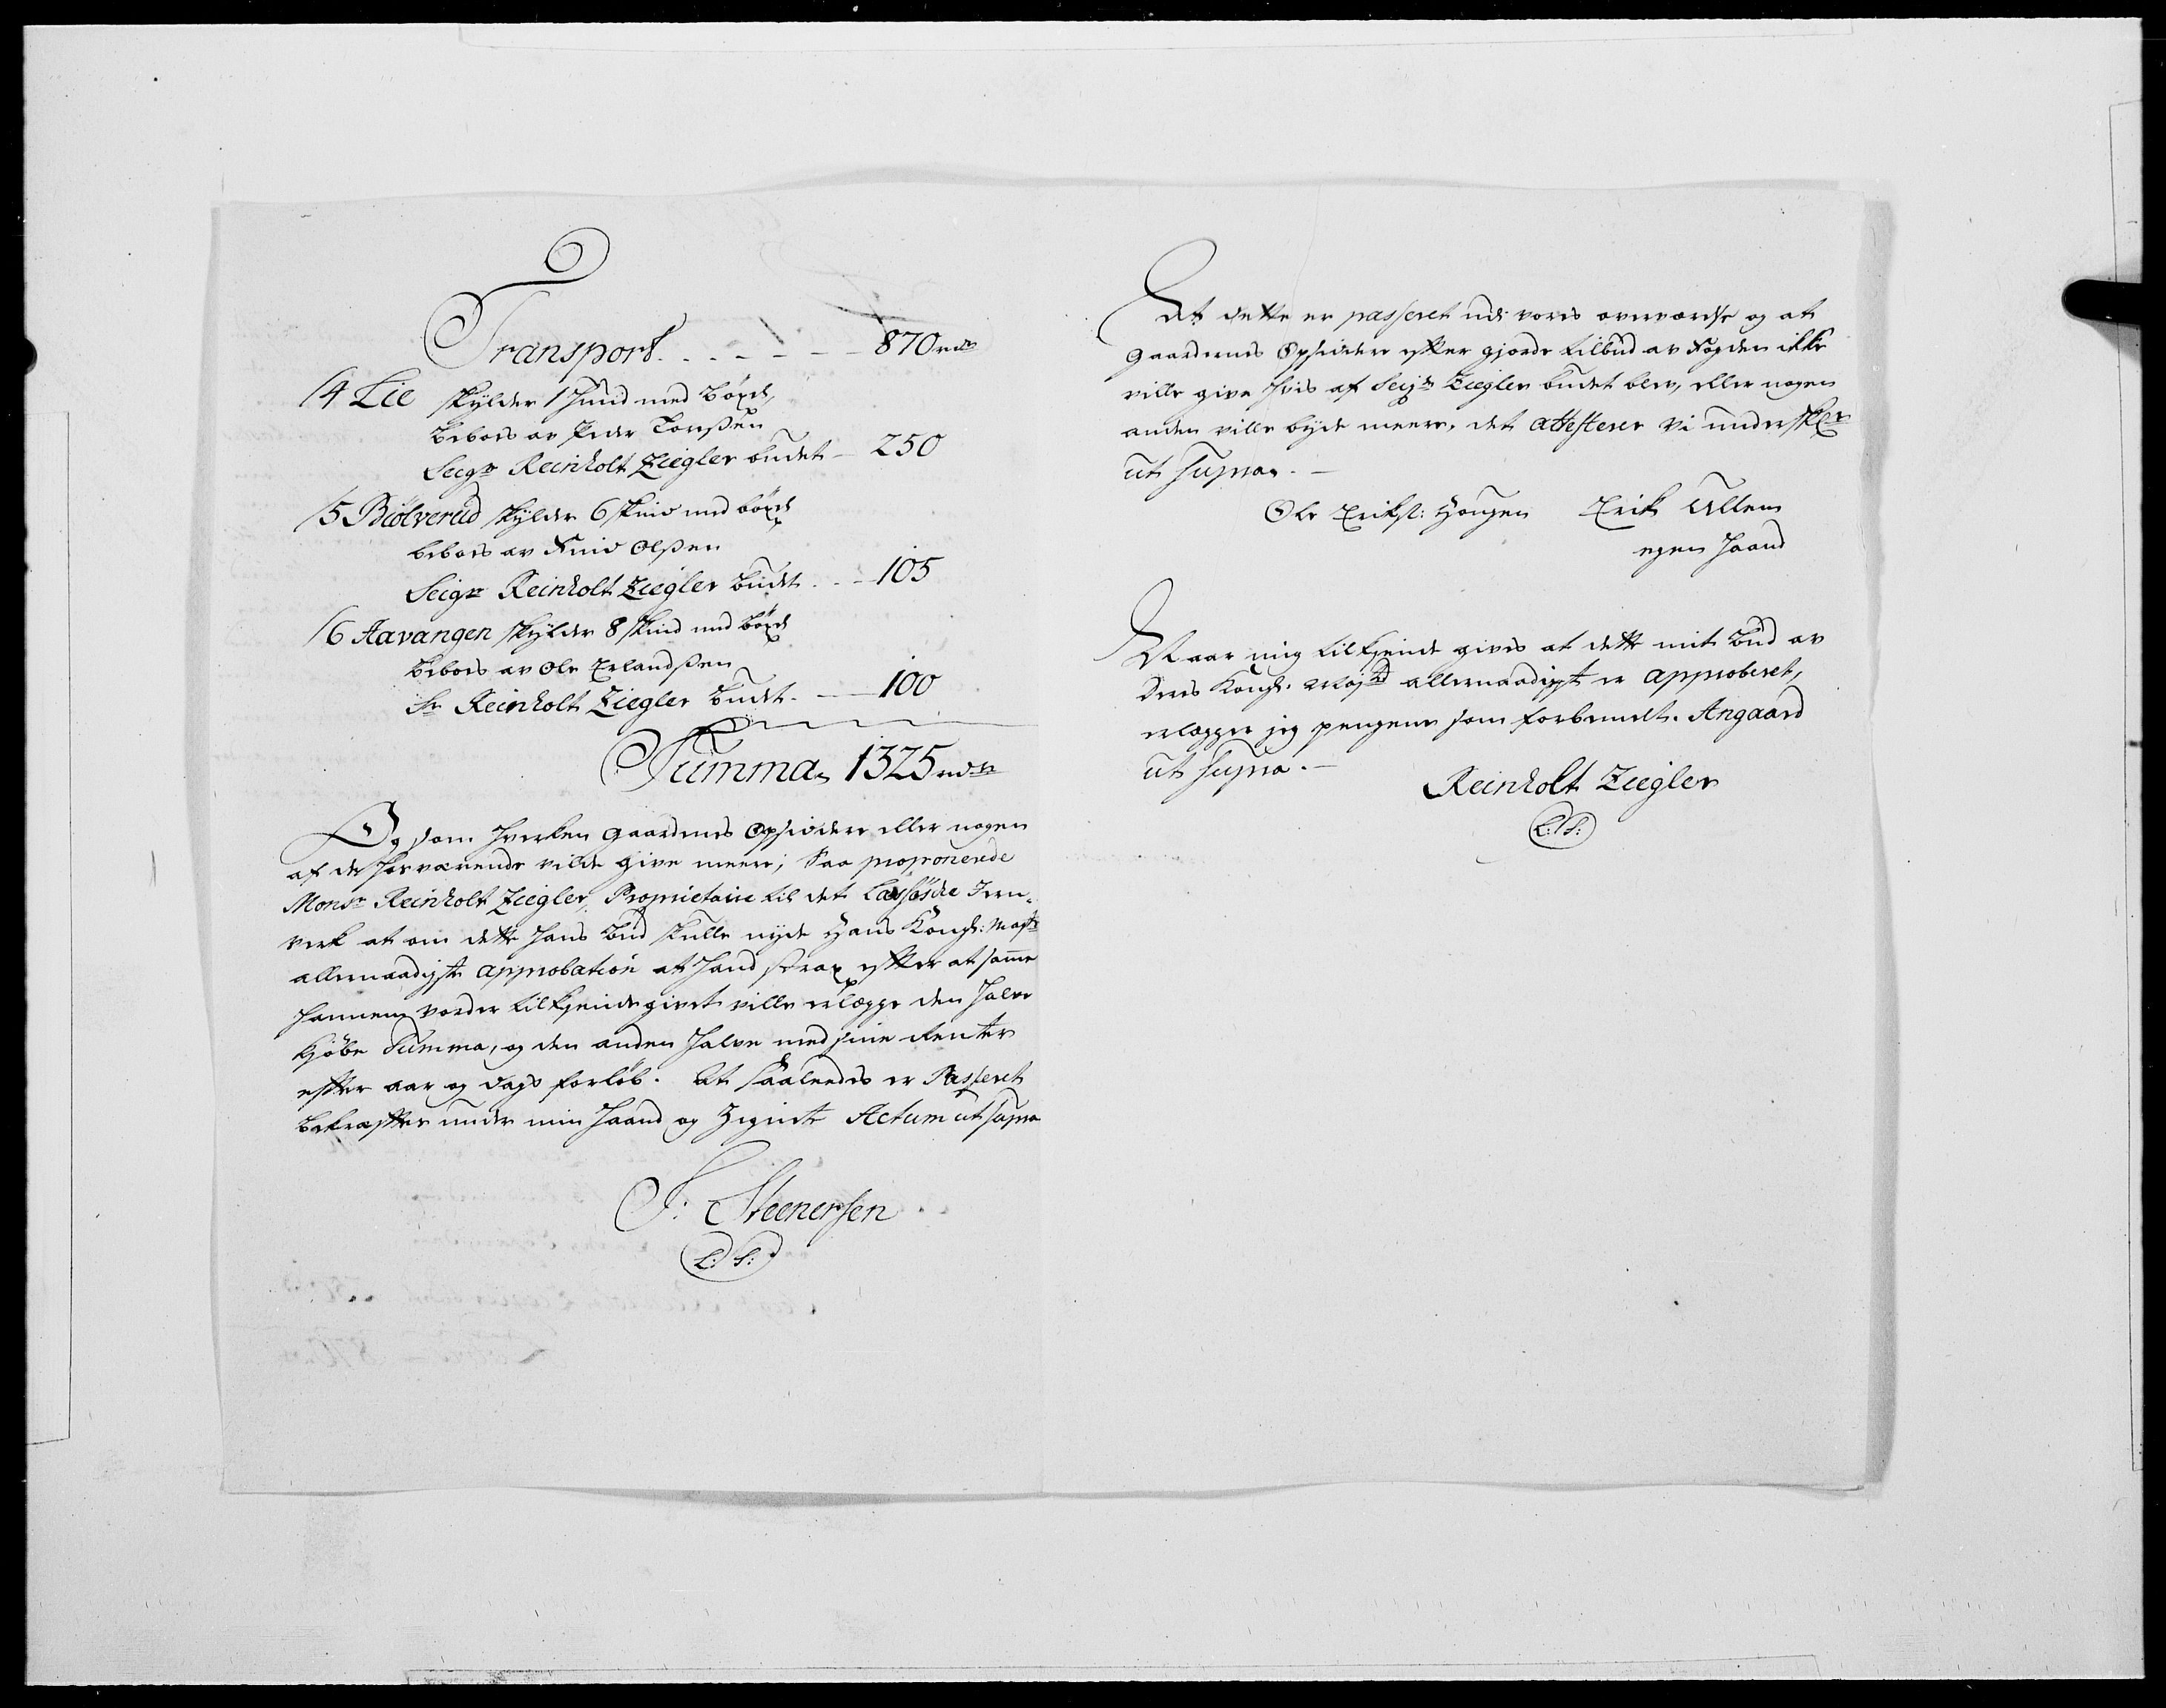 Transport. . . . - - - 870 rdr
14 Lie skylder 1 Hund med Böxel,
beboes av Peder Torsßen
Seigr Reinholt Ziegler budet - 250
15 Biölverud skylder 6 skind med böxel
beboes av Knud Olßen
Seigr Reinholt Ziegler budet . . - 105
16 Aavangen skylder 8 skind med böxel
beboes av Ole Erlandßen
Sr Reinholt Ziegler budet. - 100
Summa, 1325 rdr
Og som hverken gaardenes Opsidere eller nogen
af de hosværende vilde give meere; Saa proponerede
Monsr Reinholt Ziegler, Proprietaire til det Læssöeske Jern-
verk at om dette hans bud skulle nyde Hans Kongl: Maÿts
allernaadigste approbation at hand strax efter at samme
hannem vorder tilkjende givet ville erlægge den halve
Kjöbe Summa, og den anden halve med sine Renter
efter aar og dags forlöb. At saaleedes er Passeret
bekræfter under min haand og Zignete Actum ut supra
S: Steenersen
(L: S:)
At dette er passeret udi vores overværelse og at
gaardernes Opsiddere efter gjorde tilbud av Fogden ikke
ville give hvis af Seigr Ziegler budet blev, eller nogen
anden ville byde meere, det attesterer Vi underskr
ut supra. -
Ole Eriksl: Haugen Erik Ullern
egen haand
Naar mig tilkjende gives at dette mit bud av
Deres Kongl. Majtd allernaadigst er approberet,
erlægger jeg pengene som forbemelt. Angaard
ut supra. -
Reinholt Ziegler
(L: S:)